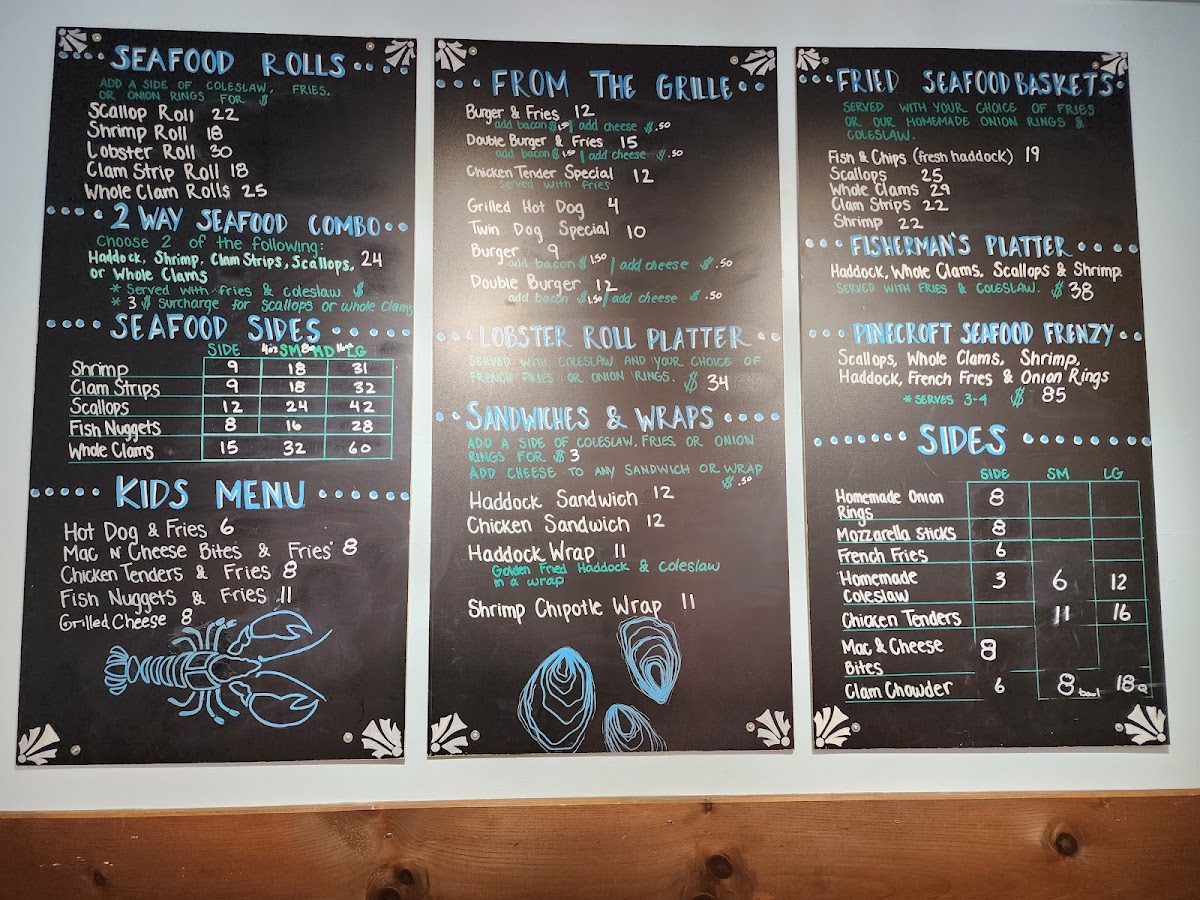 SEAFOOD ROLLS
ADD A SIDE OF COLESLAW, FRIES,
OR ONION RINGS FOR $
Scallop Roll 22
Shrimp Roll 18
Lobster Roll 30
Clam Strip Roll 18
Whole Clam Rolls 25
2 WAY SEAFOOD COMBO
Choose 2 of the following:
Haddock, Shrimp, Clam Strips, Scallops, 24
or Whole Clams
* Served with fries & coleslaw $
* 3 $ surcharge for scallops or whole clams
SEAFOOD SIDES
SIDE SM MD LG
Shrimp 9 18 31
Clam Strips 9 18 32
Scallops 12 24 42
Fish Nuggets 8 16 28
Whole Clams 15 32 60
KIDS MENU
Hot Dog & Fries 6
Mac N' Cheese Bites & Fries 8
Chicken Tenders & Fries 8
Fish Nuggets & Fries 11
Grilled Cheese 8
FROM THE GRILLE
Burger & Fries 12
add bacon $1.50 | add cheese $.50
Double Burger & Fries 15
add bacon $1.50 | add cheese $.50
Chicken Tender Special 12
Served with fries
Grilled Hot Dog 4
Twin Dog Special 10
Burger 9
add bacon $1.50 | add cheese $.50
Double Burger 12
add bacon $1.50 | add cheese $.50
LOBSTER ROLL PLATTER
SERVED WITH COLESLAW AND YOUR CHOICE OF
FRENCH FRIES OR ONION RINGS. $ 34
SANDWICHES & WRAPS
ADD A SIDE OF COLESLAW, FRIES OR ONION
RINGS FOR $3
ADD CHEESE TO ANY SANDWICH OR WRAP
$.50
Haddock Sandwich 12
Chicken Sandwich 12
Haddock Wrap 11
Golden Fried Haddock & Coleslaw
in a wrap
Shrimp Chipotle Wrap 11
FRIED SEAFOOD BASKETS
SERVED WITH YOUR CHOICE OF FRIES
OR OUR HOMEMADE ONION RINGS &
COLESLAW.
Fish & Chips (fresh haddock) 19
Scallops 25
Whole Clams 29
Clam Strips 22
Shrimp 22
FISHERMAN'S PLATTER
Haddock, Whole Clams, Scallops & Shrimp.
SERVED WITH FRIES & COLESLAW. $ 38
PINECROFT SEAFOOD FRENZY
Scallops, Whole Clams, Shrimp,
Haddock, French Fries & Onion Rings
* SERVES 3-4 $ 85
SIDES
SIDE SM LG
Homemade Onion 8
Rings
Mozzarella Sticks 8
French Fries 6
Homemade 3 6 12
Coleslaw
Chicken Tenders 11 16
Mac & Cheese 8
Bites
Clam Chowder 6 8 bowl 18